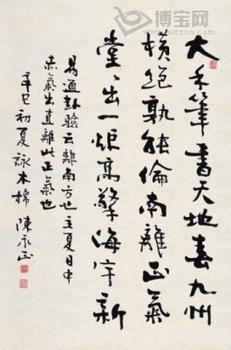 博宝网
www.artxun.com
大手筆書天地春九州
橫絕孰能倫南離正氣
堂〻出一炬高擎海宇新
易通卦驗云離南方也主夏日中
赤氣出直離此正氣也
辛巳初夏詠木棉 陳永正